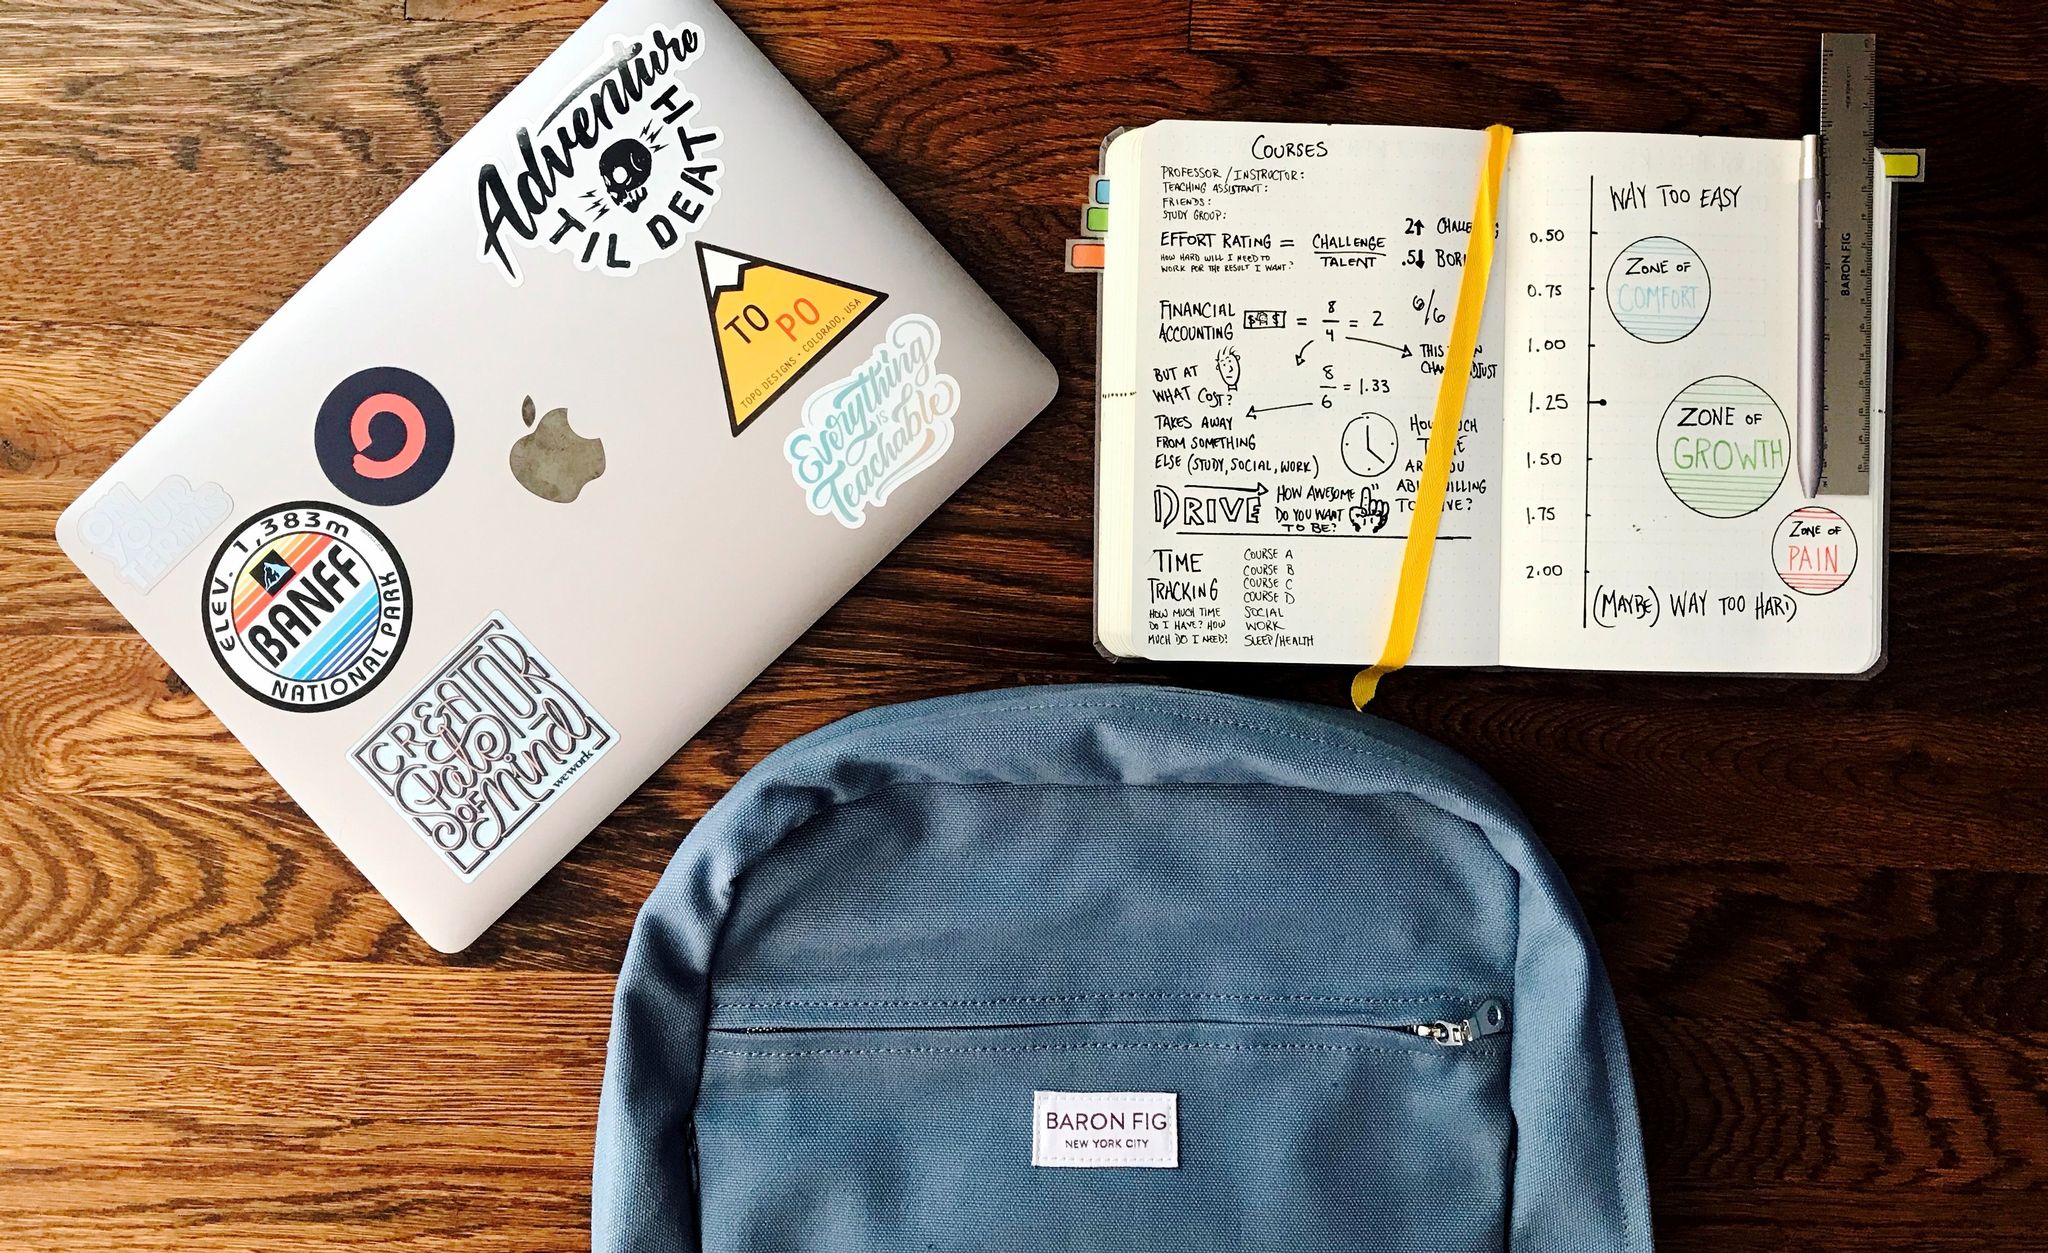 Adventure
TIL DEATH
TO PO
TOPO DESIGNS • COLORADO, USA
Everything
is
Teachable
ON
YOUR
TERMS
ELEV. 1,383m
BANFF
NATIONAL PARK
CREATOR
State
OF
Mind
wework
COURSES
PROFESSOR/INSTRUCTOR:
TEACHING ASSISTANT:
FRIENDS:
STUDY GROUP:
EFFORT RATING = CHALLENGE
TALENT
HOW HARD WILL I NEED TO
WORK FOR THE RESULT I WANT?
2↑
.5↓
FINANCIAL
ACCOUNTING
$ $ = 8
4 = 2
6/6
BUT AT
WHAT COST?
8
6 = 1.33
THIS
TAKES AWAY
FROM SOMETHING
ELSE (STUDY, SOCIAL, WORK)
DRIVE
HOW AWESOME
DO YOU WANT
TO BE?
TIME
TRACKING
HOW MUCH TIME
DO I HAVE? HOW
MUCH DO I NEED?
COURSE A
COURSE B
COURSE C
COURSE D
SOCIAL
WORK
SLEEP/HEALTH
WAY TOO EASY
0.50
ZONE OF
COMFORT
0.75
1.00
1.25
ZONE OF
GROWTH
1.50
1.75
ZONE OF
PAIN
2.00
(MAYBE) WAY TOO HARD
BARON FIG
BARON FIG
NEW YORK CITY